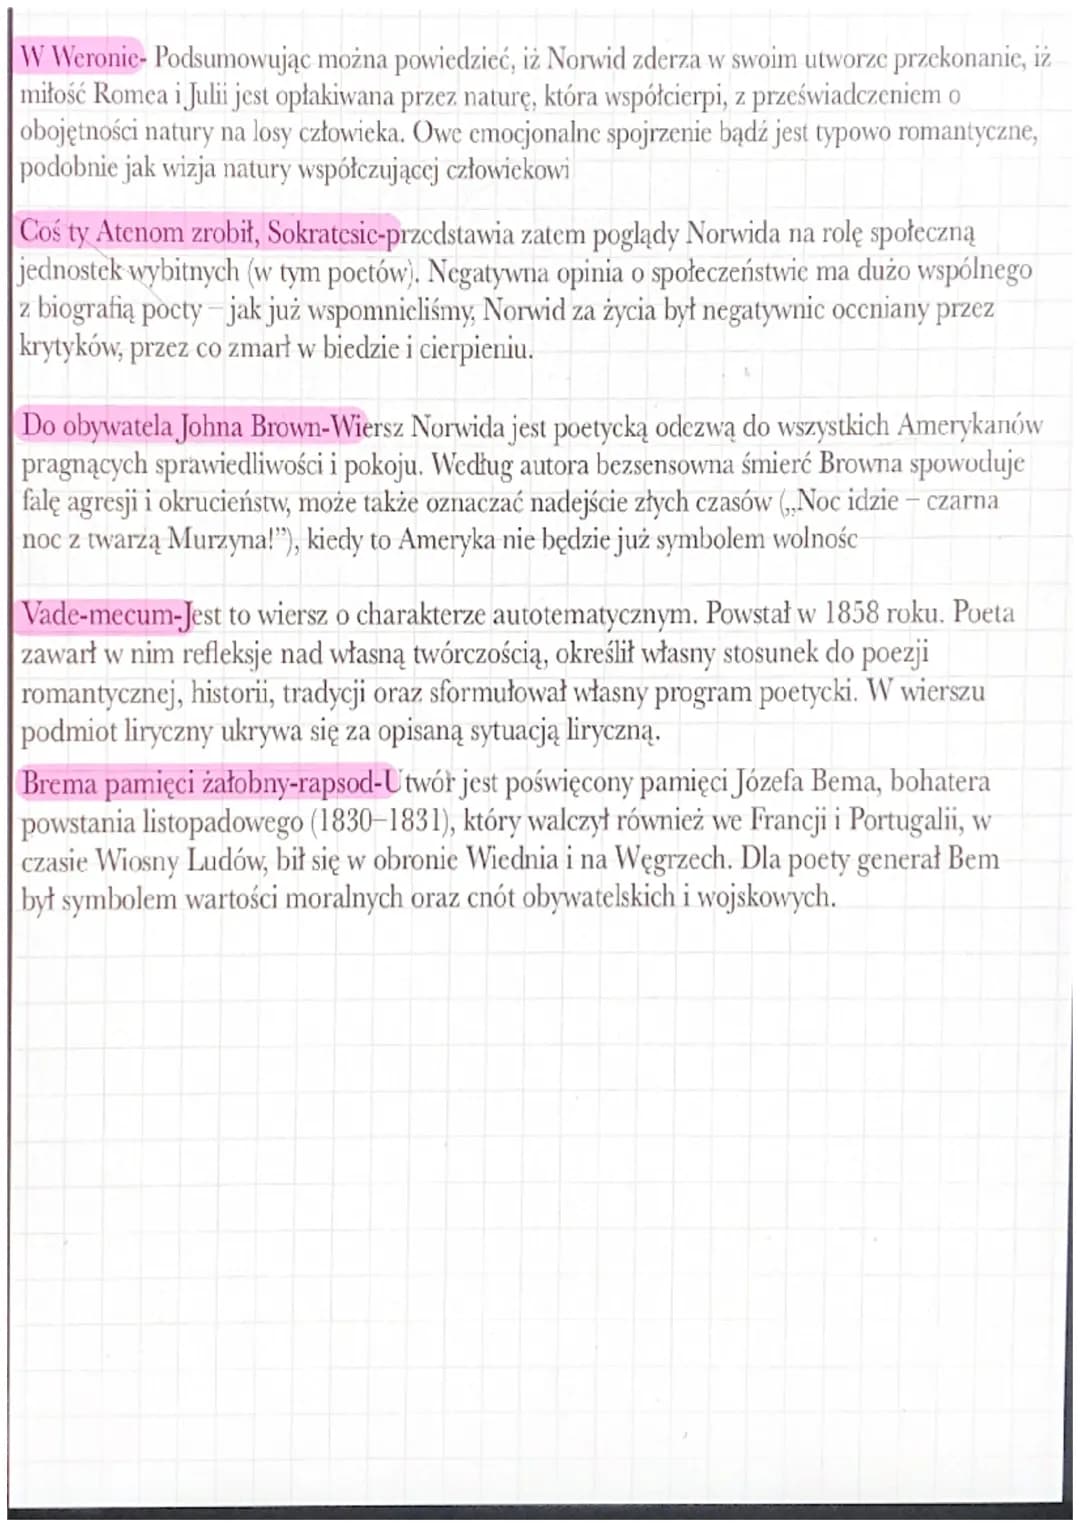 W Weronie- Podsumowując można powiedzieć, iż Norwid zderza w swoim utworze przekonanie, iż
miłość Romea i Julii jest opłakiwana przez naturę, która współcierpi, z przeświadczeniem o
obojętności natury na losy człowieka. Owe emocjonalne spojrzenie bądź jest typowo romantyczne,
podobnie jak wizja natury współczującej człowiekowi
Coś ty Atenom zrobił, Sokratesie-przedstawia zatem poglądy Norwida na rolę społeczną
jednostek wybitnych (w tym poetów). Negatywna opinia o społeczeństwie ma dużo wspólnego
z biografią poety – jak już wspomnieliśmy, Norwid za życia był negatywnie oceniany przez
krytyków, przez co zmarł w biedzie i cierpieniu.
Do obywatela Johna Brown-Wiersz Norwida jest poetycką odezwą do wszystkich Amerykanów
pragnących sprawiedliwości i pokoju. Według autora bezsensowna śmierć Browna spowoduje
falę agresji i okrucieństw, może także oznaczać nadejście złych czasów („Noc idzie – czarna
noc z twarzą Murzyna!”), kiedy to Ameryka nie będzie już symbolem wolnośc
Vade-mecum-Jest to wiersz o charakterze autotematycznym. Powstał w 1858 roku. Poeta
zawarł w nim refleksje nad własną twórczością, określił własny stosunek do poezji
romantycznej, historii, tradycji oraz sformułował własny program poetycki. W wierszu
podmiot liryczny ukrywa się za opisaną sytuacją liryczną.
Brema pamięci żałobny-rapsod-Utwór jest poświęcony pamięci Józefa Bema, bohatera
powstania listopadowego (1830–1831), który walczył również we Francji i Portugalii, w
czasie Wiosny Ludów, bił się w obronie Wiednia i na Węgrzech. Dla poety generał Bem
był symbolem wartości moralnych oraz cnót obywatelskich i wojskowych.